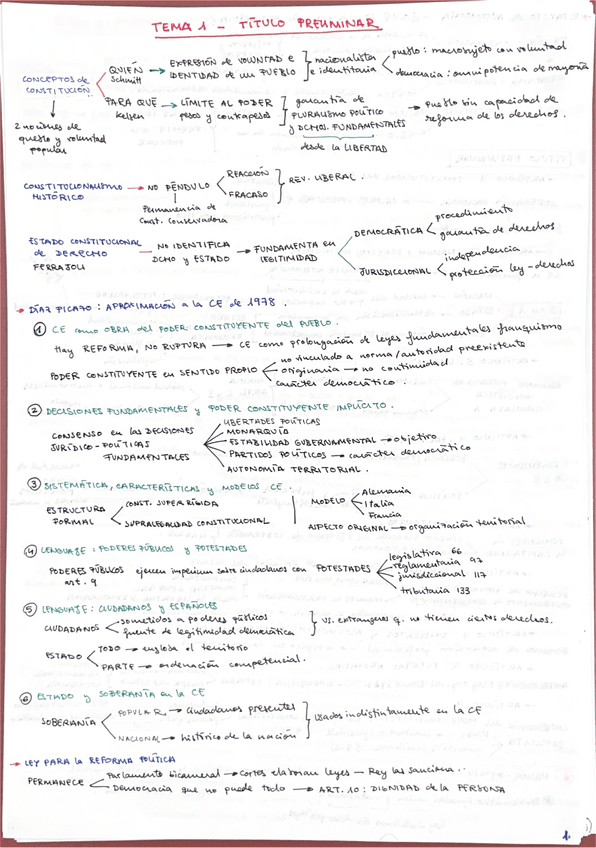 TEMA 1 - TÍTULO PRELIMINAR
CONCEPTOS de CONSTITUCIÓN
QUIÉN Schmitt → EXPRESIÓN de VOLUNTAD e IDENTIDAD de un PUEBLO
nacionalista e identitaria
pueblo: macrosujeto con voluntad
democracia: omnipotencia de mayoría
PARA QUÉ Kelsen → LÍMITE AL PODER pesos y contrapesos
garantía de PLURALISMO POLÍTICO y DCHOS. FUNDAMENTALES
desde la LIBERTAD
→ Pueblo sin capacidad de reforma de los derechos.
2 nociones de pueblo y voluntad popular
CONSTITUCIONALISMO HISTÓRICO → NO PÉNDULO
REACCIÓN
FRACASO
REV. LIBERAL.
Permanencia de Const. conservadora
ESTADO CONSTITUCIONAL de DERECHO FERRAJOLI → NO IDENTIFICA DCHO y ESTADO → FUNDAMENTA en LEGITIMIDAD
DEMOCRÁTICA
procedimiento
garantía de derechos
JURISDICCIONAL
independencia
protección ley-derechos
→ DÍAZ PICAZO: APROXIMACIÓN a la CE de 1978.
① CE como OBRA del PODER CONSTITUYENTE del PUEBLO.
Hay REFORMA, NO RUPTURA → CE como prolongación de leyes fundamentales franquismo
PODER CONSTITUYENTE en SENTIDO PROPIO
no vinculado a norma/autoridad preexistente
originaria → no continuidad
carácter democrático.
② DECISIONES FUNDAMENTALES y PODER CONSTITUYENTE IMPLÍCITO.
CONSENSO en las DECISIONES JURÍDICO-POLÍTICAS FUNDAMENTALES
LIBERTADES POLÍTICAS
MONARQUÍA
ESTABILIDAD GUBERNAMENTAL → objetivo
PARTIDOS POLÍTICOS → carácter democrático
AUTONOMÍA TERRITORIAL.
③ SISTEMÁTICA, CARACTERÍSTICAS y MODELOS CE.
ESTRUCTURA FORMAL
CONST. SUPERRÍGIDA
SUPRALEGALIDAD CONSTITUCIONAL
MODELO
Alemania
Italia
Francia
ASPECTO ORIGINAL → organización territorial
④ LENGUAJE: PODERES PÚBLICOS y POTESTADES
PODERES PÚBLICOS ejercen imperium sobre ciudadanos con POTESTADES
art. 9
legislativa 66
reglamentaria 97
jurisdiccional 117
tributaria 133
⑤ LENGUAJE: CIUDADANOS y ESPAÑOLES
CIUDADANOS
sometidos a poderes públicos
fuente de legitimidad democrática
vs. extranjeros q. no tienen ciertos derechos.
ESTADO
TODO → engloba el territorio
PARTE → ordenación competencial.
⑥ ESTADO y SOBERANÍA en la CE
SOBERANÍA
POPULAR → ciudadanos presentes
NACIONAL → histórico de la nación
usados indistintamente en la CE
→ LEY PARA la REFORMA POLÍTICA
PERMANECE
Parlamento bicameral → Cortes elaboran leyes → Rey las sanciona.
Democracia que no puede todo → ART. 10: DIGNIDAD de la PERSONA
1.